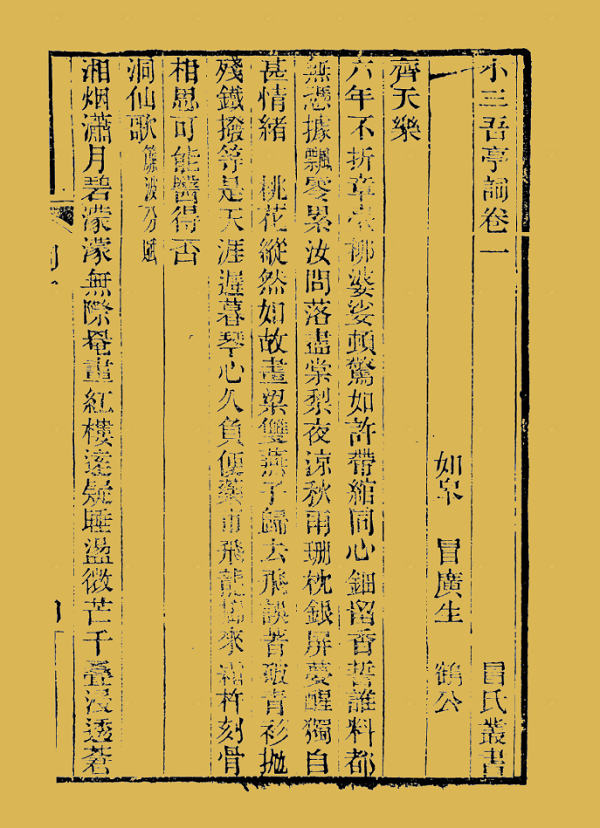 小三吾亭詞卷一 冒氏叢書
如皋 冒廣生 鶴公
齊天樂
六年不折章臺柳婆娑頓驚如許帶綰同心鈿留香誓誰料都
無憑據飄零累汝問落盡棠梨夜涼秋雨珊枕銀屏夢醒獨自
甚情緒 桃花縱然如故畫梁雙燕子歸去飛誤著破青衫拋
殘鐵撥等是天涯遲暮琴心久負便藥市飛龍 來霜杵刻骨
相思可能醫得否
洞仙歌 簾波分賦
湘烟瀟月碧濛濛無際 畫紅樓遠疑睡盪微茫千疊浸透蒼